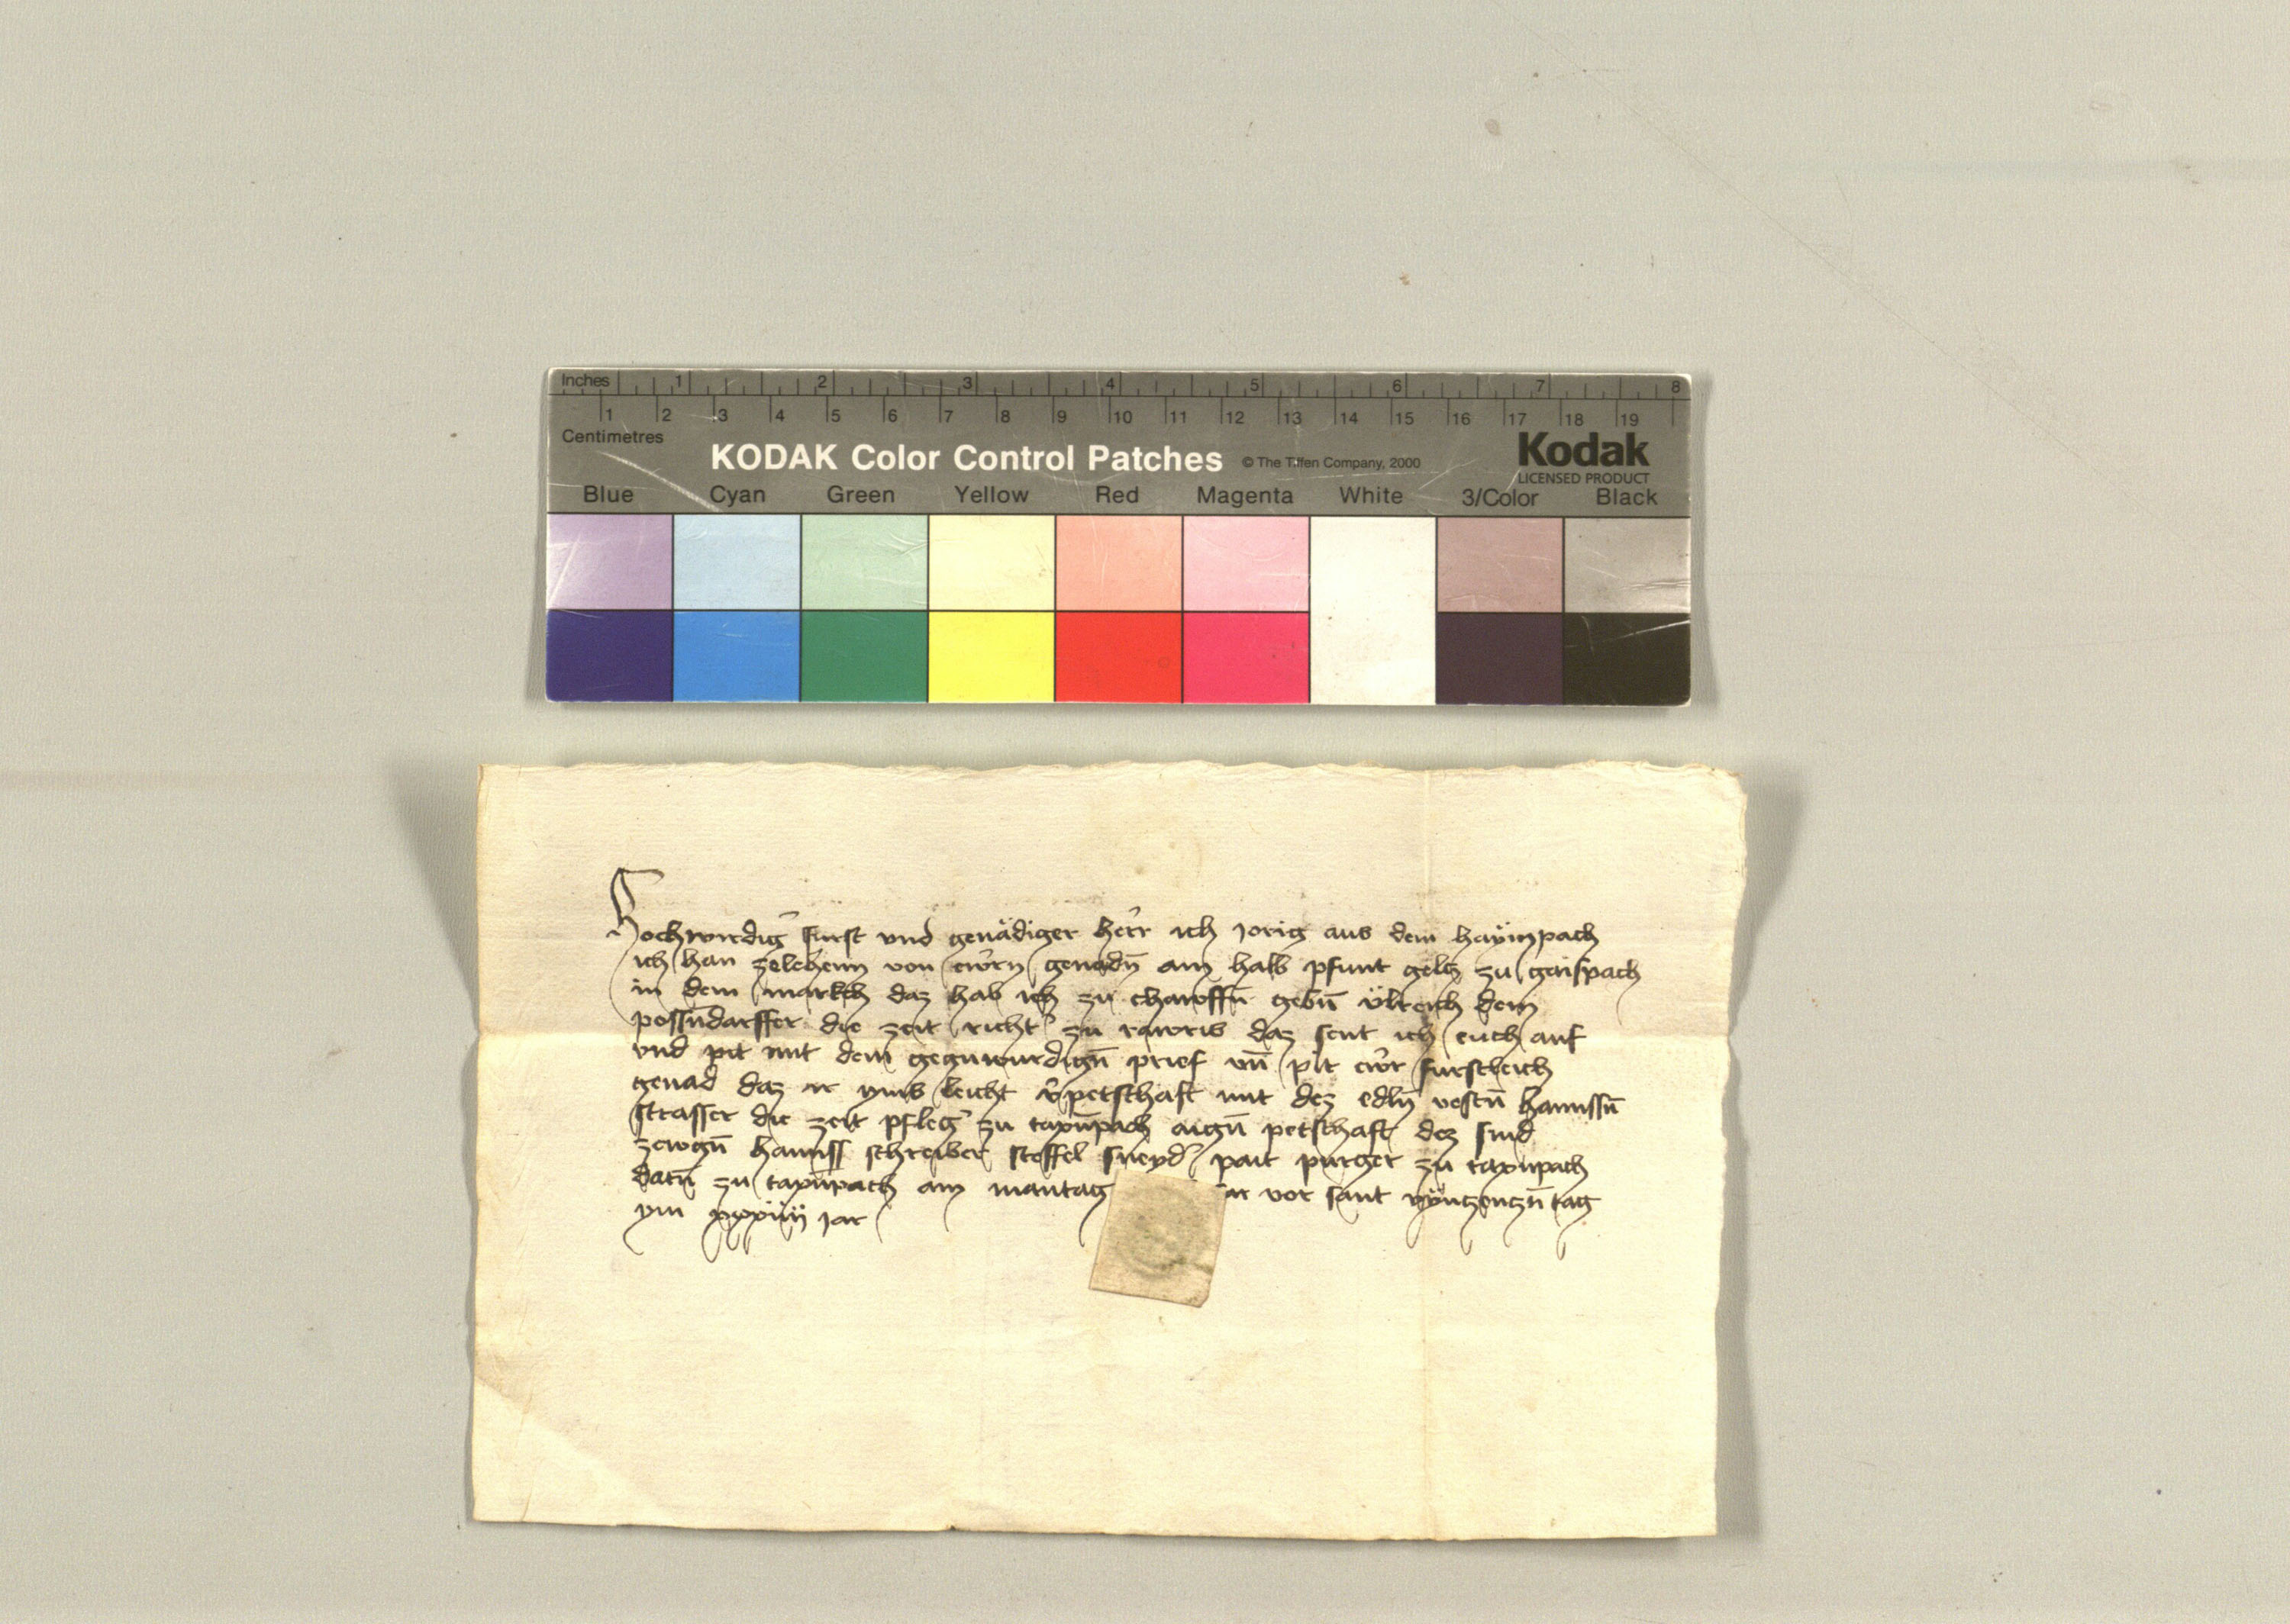 Inches 1 2 3 4 5 6 7 8
1 2 3 4 5 6 7 8 9 10 11 12 13 14 15 16 17 18 19
Centimetres
KODAK Color Control Patches © The Tiffen Company, 2000 Kodak
LICENSED PRODUCT
Blue Cyan Green Yellow Red Magenta White 3/Color Black
Hochwirdig' furst vnd genädiger her'r ich Jorig aus dem haÿmpach
ich han zelehenn von ew'rn genadn̄ ain halb pfunt geltz zu gaispach
in dem markch daz hab ich zu chawffn̄ gebn̄ ülreich dem
possn̄darffer die zeit richt' zu rawris daz sent ich euch auf
vnd pit mit dem gegnwurdign̄ prief vn̄ pit ew'r furstleich
genad daz ir yms leicht petschaft mit dez edln̄ vestn̄ hannssn̄
strasser die zeit pfleg' zu taxn̄pach aign̄ petschaft dez sind
zewgn̄ hanns schreiber stoffel sneyd' pait purger zu taxnpach
datn̄ zu taxn̄pach am mantag vor sant vÿntzentzn̄ tag
ym xxxiiij jar